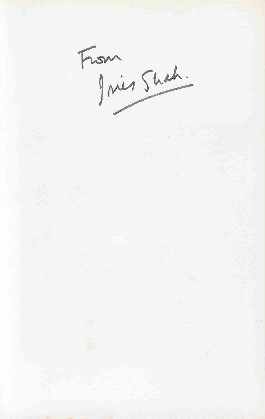 From
Idries Shah.